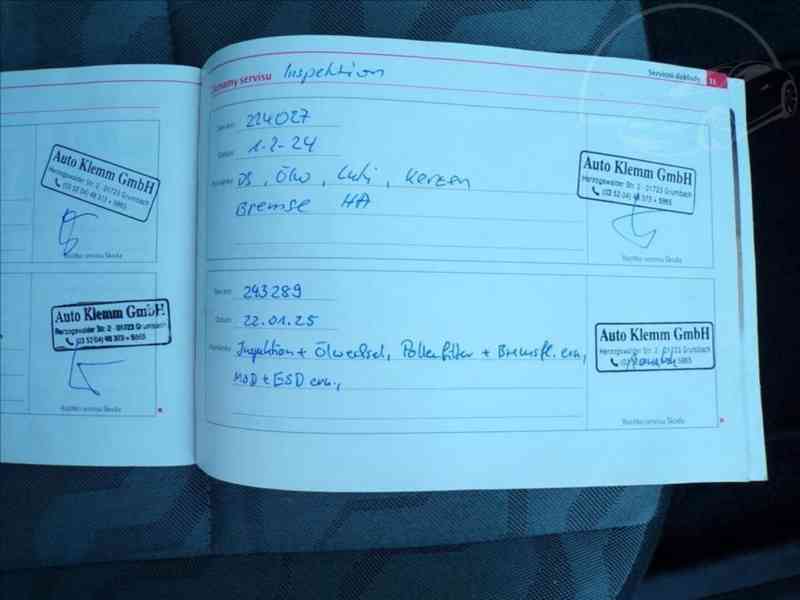 Auto Klemm GmbH
Herzogswalder Str. 2 · 01723 Grumbach
(03 52 04) 48 373 + 5865
Razítko servisu Škoda
Auto Klemm GmbH
Herzogswalder Str. 2 · 01723 Grumbach
(03 52 04) 48 373 + 5865
Razítko servisu Škoda
Záznamy servisu Inspektion
Servisní doklady
224027
Datum 1-2-24
ÖS, Öko, Lufi, Kerzen
Bremse HA
Auto Klemm GmbH
Herzogswalder Str. 2 · 01723 Grumbach
(03 52 04) 48 373 + 5865
Razítko servisu Škoda
243289
Datum 22.01.25
Inspektion + Ölwechsel, Pollenfilter + Bremsfl. ern,
MSD + ESD ern.,
Auto Klemm GmbH
Herzogswalder Str. 2 · 01723 Grumbach
5865
Razítko servisu Škoda